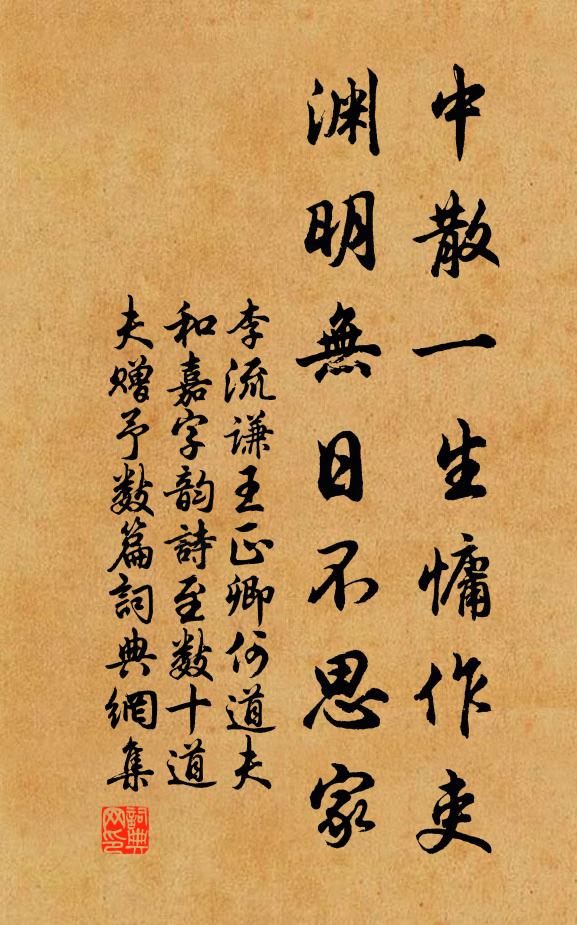 中散一生慵作吏
淵明無日不思家
李流謙王正卿何道夫
和嘉字韵詩至数十道
夫赠予数篇詞典網集
詞典网印